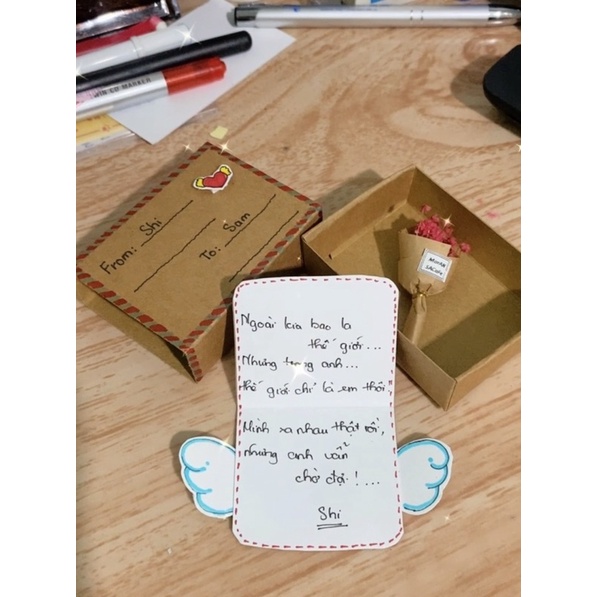 WIN CD MARKER
From: Shi
To: Sam
Ngoài kia bao la
thế giới...
Nhưng trong anh...
thế giới chỉ là em thôi,
Mình xa nhau thật rồi,
nhưng anh vẫn
chờ đợi!...
Shi